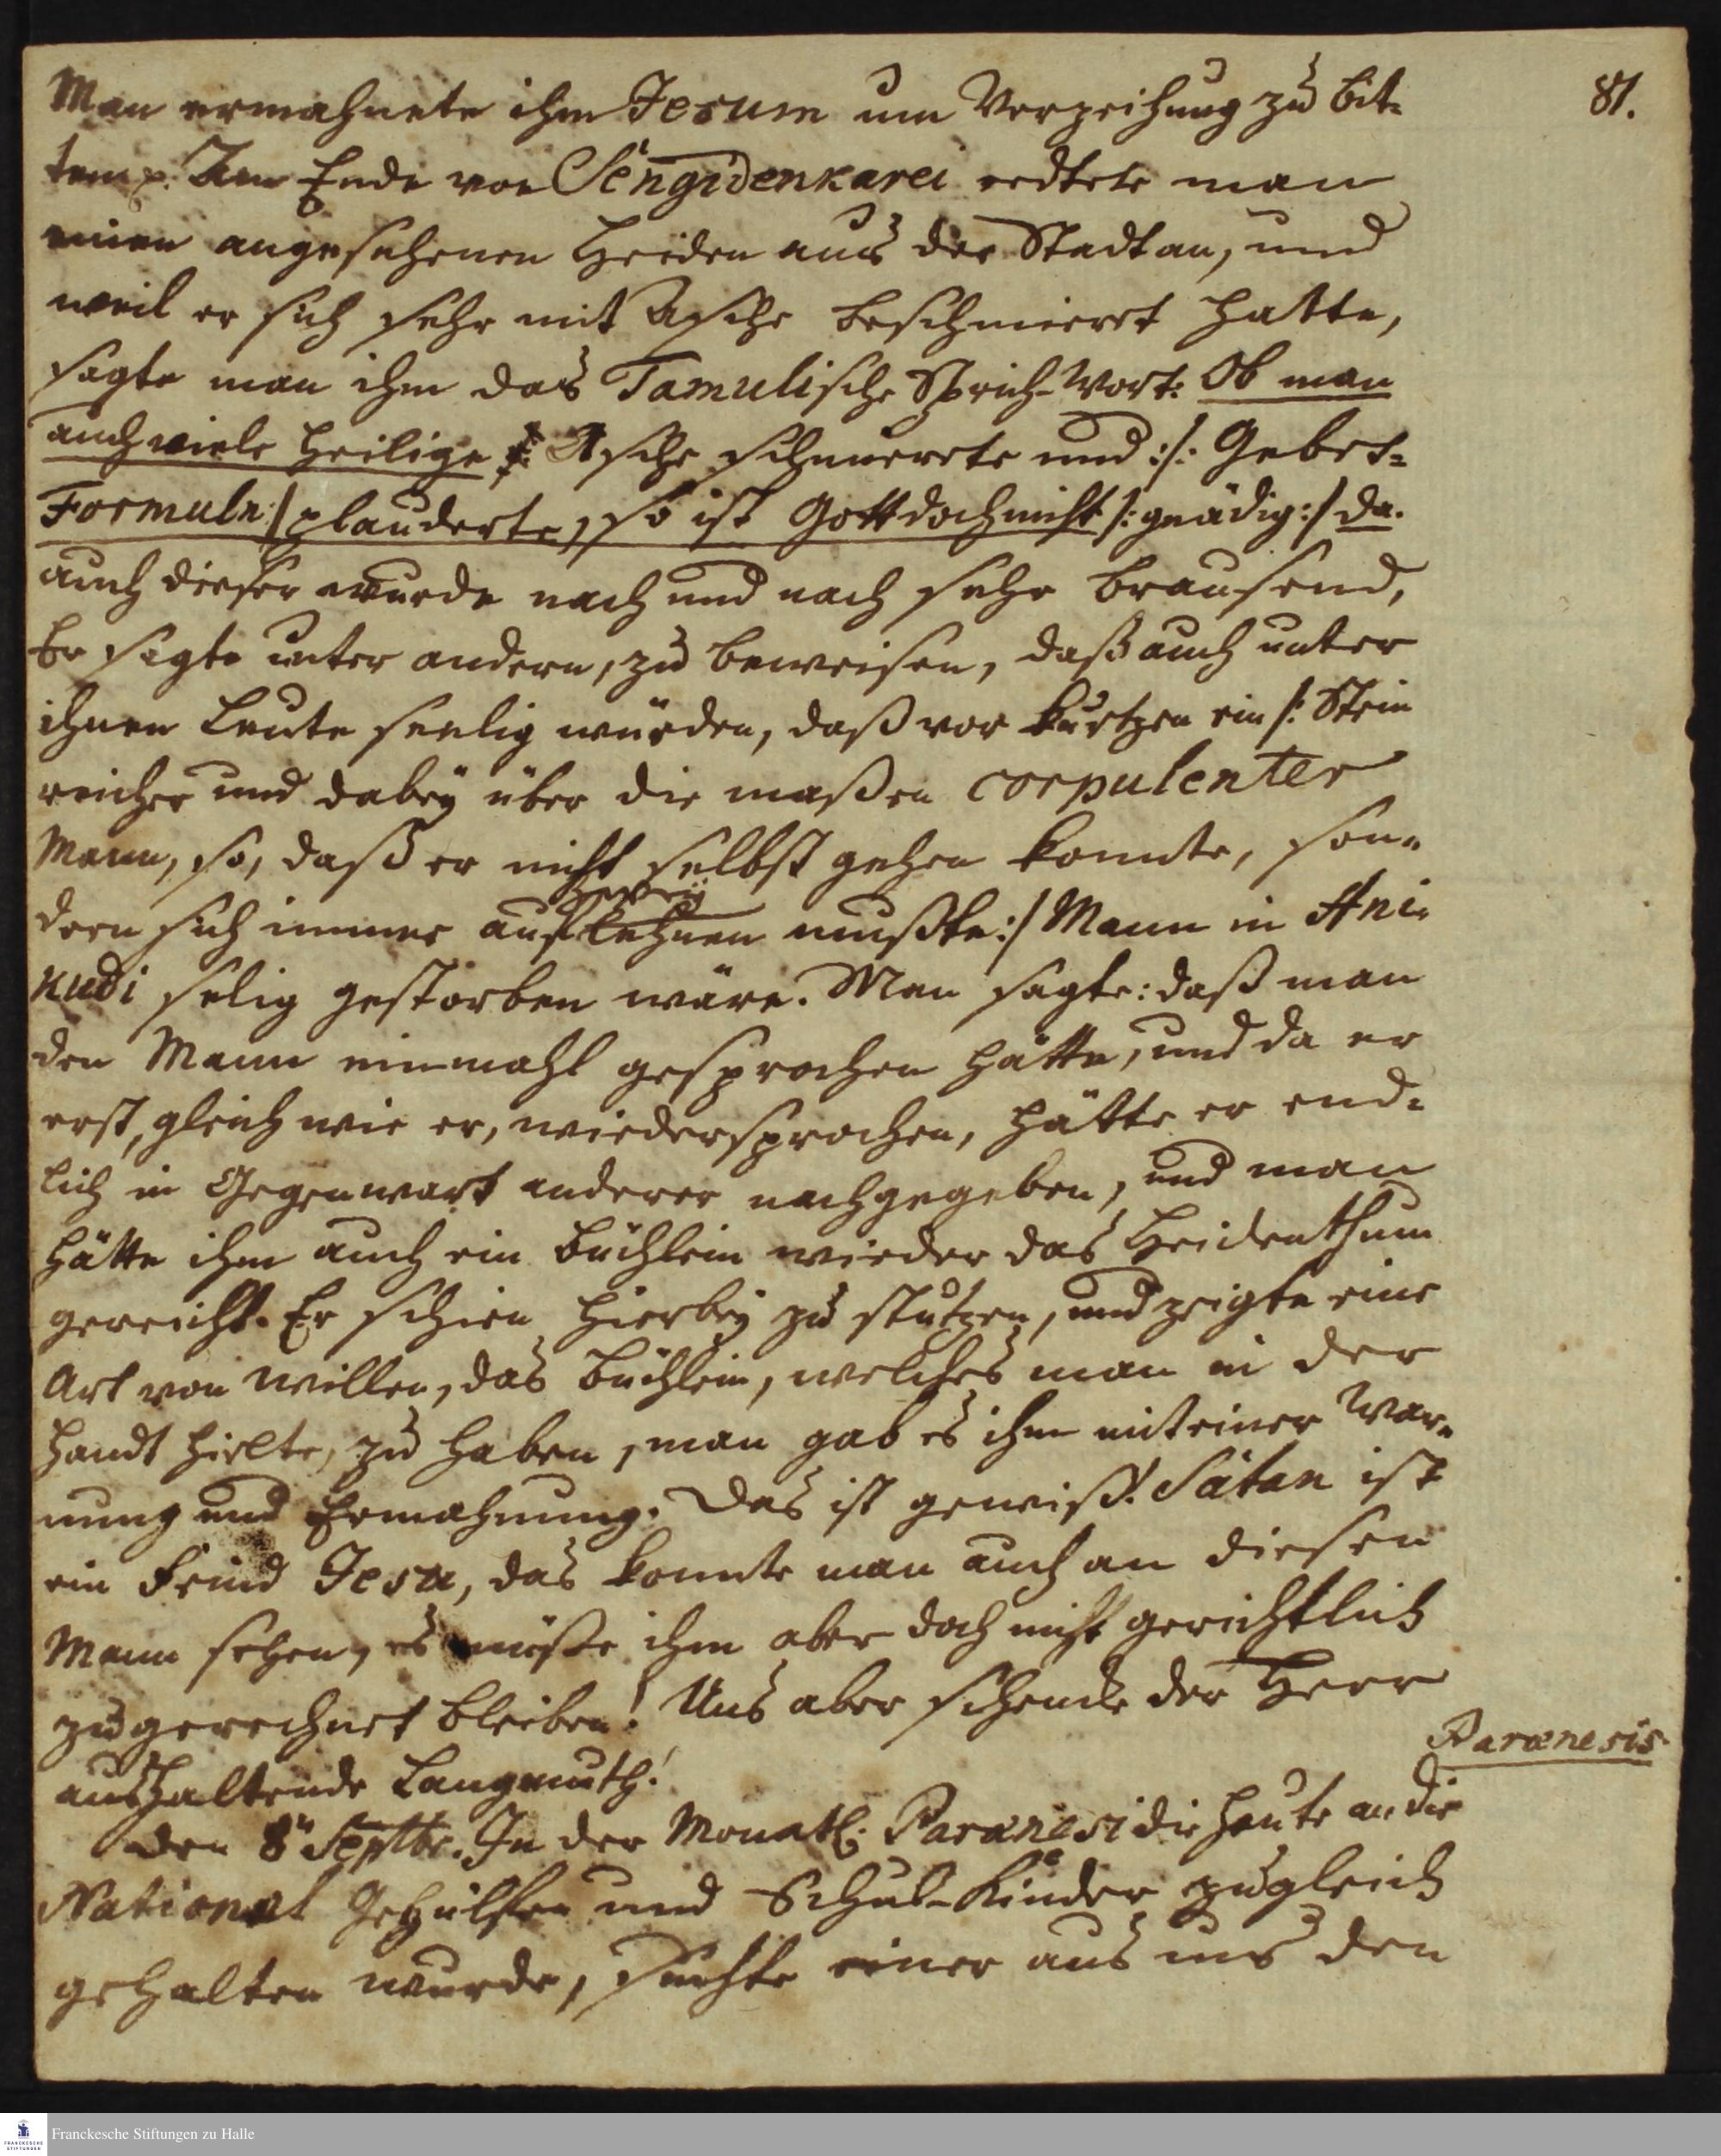 81.
Man ermahnete ihn Jesum um Verzeihung zu bit-
ten p. Am Ende von Sengidenkarei redtete man
einen angesehenen Heiden aus der Stadt an, und
weil er sich sehr mit Asche beschmieret hatte,
sagte man ihm das Tamulische Sprich-Wort: Ob man
auch viele heilige Asche schmierete und :/: Gebet-
Formuln :/ plauderte, so ist Gott doch nicht /: gnädig :/ da.
auch dieser wurde nach und nach sehr brausend,
Er sagte unter andern, zu beweisen, daß auch unter
ihnen Leute seelig würden, daß vor kurtzen ein /: Stein
reicher und dabey über die maßen corpulenter
Mann, so, daß er nicht selbst gehen konte, son-
dern sich immer auf lehnen mußte :/ Mann in Ani-
kudi selig gestorben wäre. Man sagte: daß man
den Mann einmahl gesprochen hätte, und da er
erst, gleich wie er, wiedersprochen, hätte er end-
lich in Gegenwart anderer nachgegeben, und man
hätte ihm auch ein Büchlein wieder das Heidenthum
gereicht. Er schien hierbey zu stutzen, und zeigte eine
Art von Willen, das Büchlein, welches man in der
Handt hielte, zu haben, man gab es ihm mit einer War-
nung und Ermahnung. Das ist gewiß! Satan ist
ein Feind Jesu, das konnte man auch an diesen
Mann sehen, es müße ihm aber doch nicht gerichtlich
zugerechnet bleiben! Uns aber schencke der Herr
aushaltende Langmuth!
Paraenesis
Den 8ten Septbr. In der Monatl. Paraenesi die heute an die
National Gehülffen und Schul-Kinder zugleich
gehalten wurde, suchte einer aus uns den
Franckesche Stiftungen zu Halle